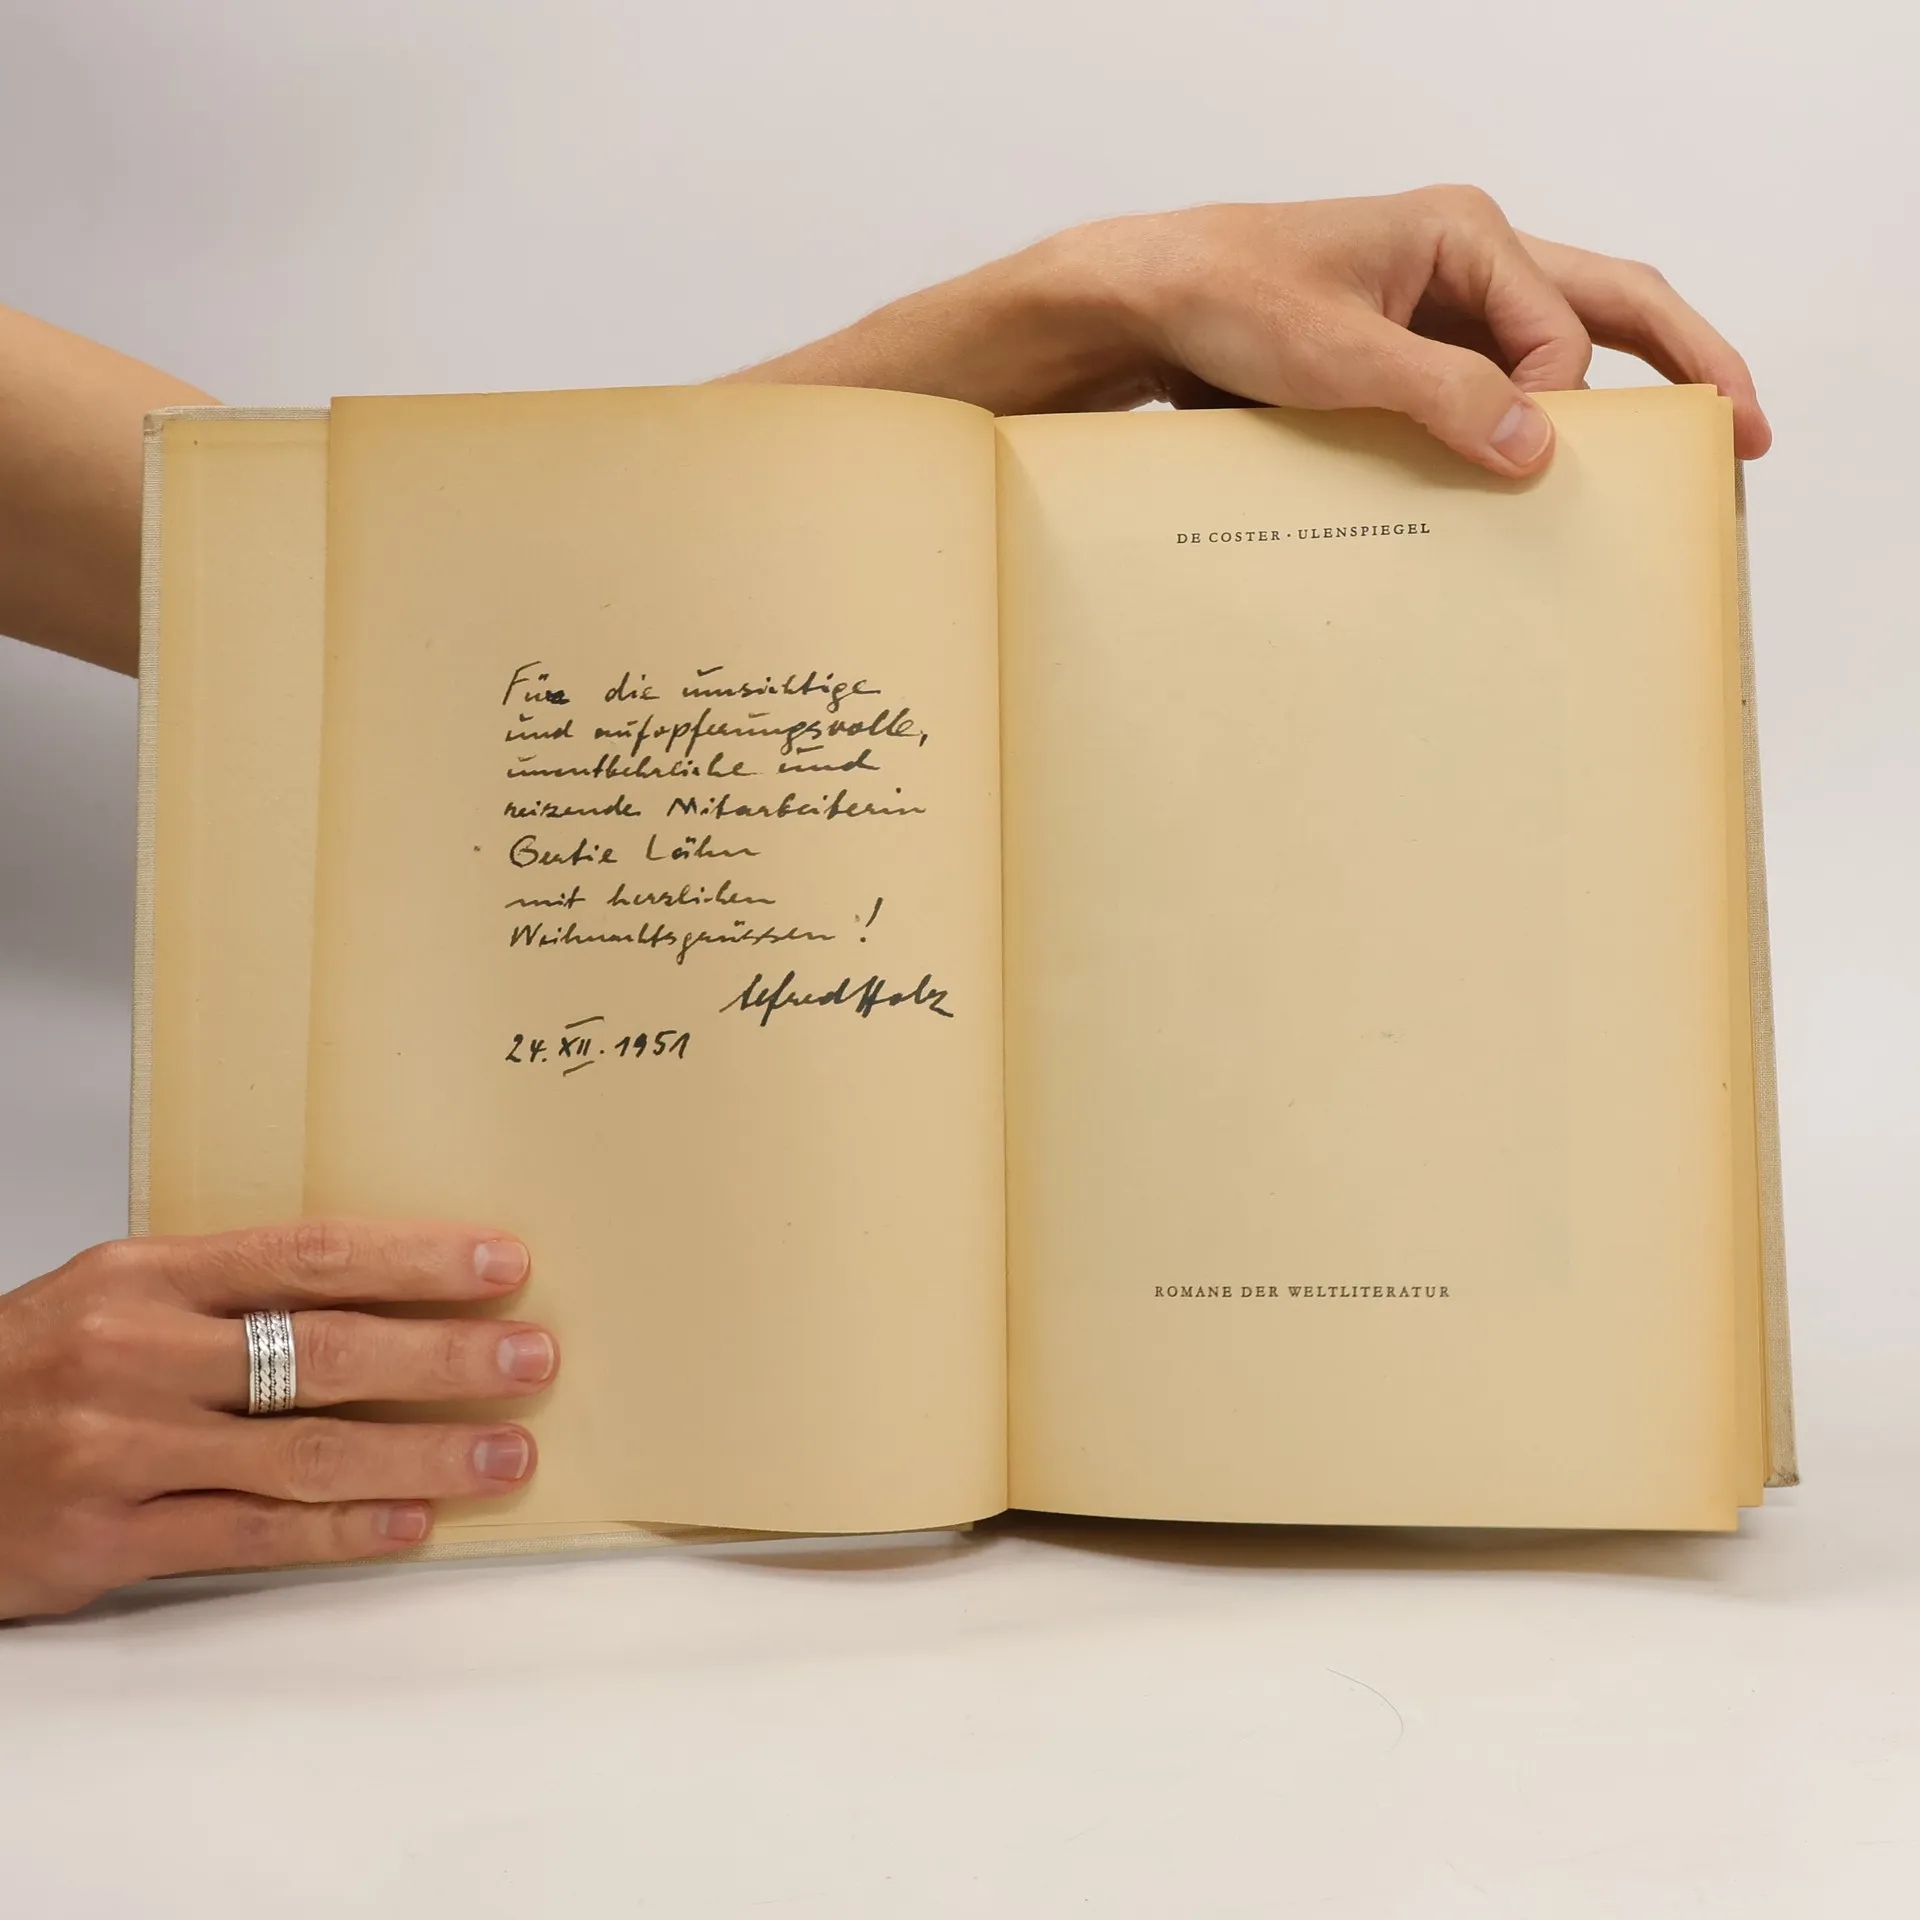 Für die umsichtige
und aufopferungsvolle,
unentbehrliche und
reizende Mitarbeiterin
Gertie Lähn
mit herzlichen
Weihnachtsgrüssen!
Alfred Holz
24. XII. 1951
DE COSTER · ULENSPIEGEL
ROMANE DER WELTLITERATUR